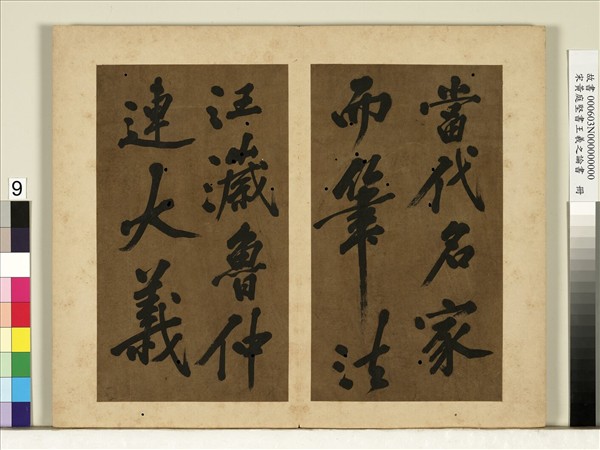 故書 000603N000000000
宋黃庭堅書王羲之論書 冊
當代名家
而筆法
汪濊魯仲
連大義
9